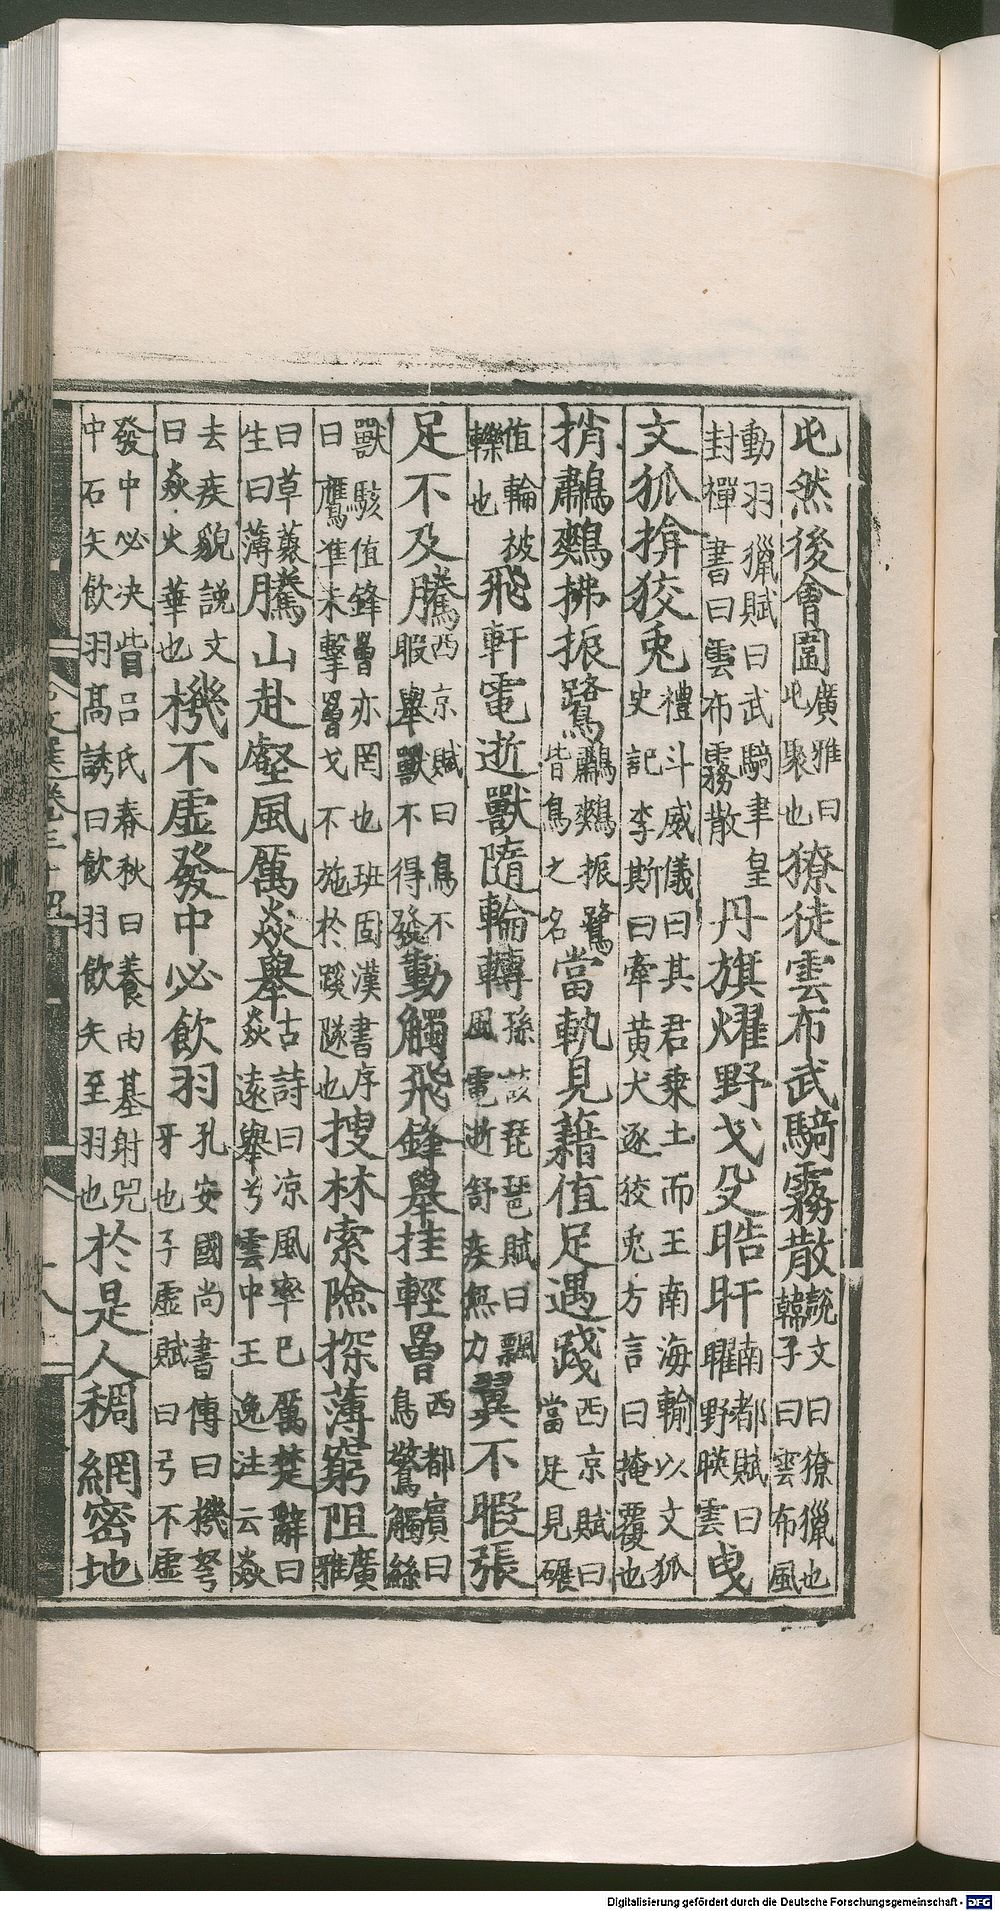 屯然後會圍廣雅曰屯聚也獠徒雲布武騎霧散說文曰獠獵也韓子曰雲布風
動羽獵賦曰武騎聿皇封禪書曰雲布霧散丹旗燿野戈殳晧旰南都賦曰曜野暎雲曳
文狐揜狡兎禮斗威儀曰其君乗土而王南海輸以文狐史記李斯曰牽黄犬逐狡兎方言曰掩覆也
捎鷫鷞拂振鷺鷫鷞振鷺皆鳥之名當軌見藉值足遇踐西京賦曰當足見碾
值輪被轢也飛軒電逝獸隨輪轉孫該琵琶賦曰飄風電逝舒疾無力翼不暇張
足不及騰西京賦曰鳥不暇舉獸不得發動觸飛鋒舉挂輕罾西都賓曰鳥驚觸絲
獸駭值鋒罾亦罔也班固漢書序曰鷹隼未擊罾戈不施於蹊隧也搜林索險探薄窮阻廣雅
曰草藂生曰薄騰山赴壑風厲焱舉古詩曰凉風率已厲楚辭曰焱遠舉兮雲中王逸注云焱
去疾貌說文曰焱火華也機不虛發中必飲羽孔安國尚書傳曰機弩牙也子虛賦曰弓不虛
發中必决眥吕氏春秋曰養由基射兕中石矢飲羽高誘曰飲羽飲矢至羽也於是人稠網密地
文選卷三十四
Digitalisierung gefördert durch die Deutsche Forschungsgemeinschaft - DFG